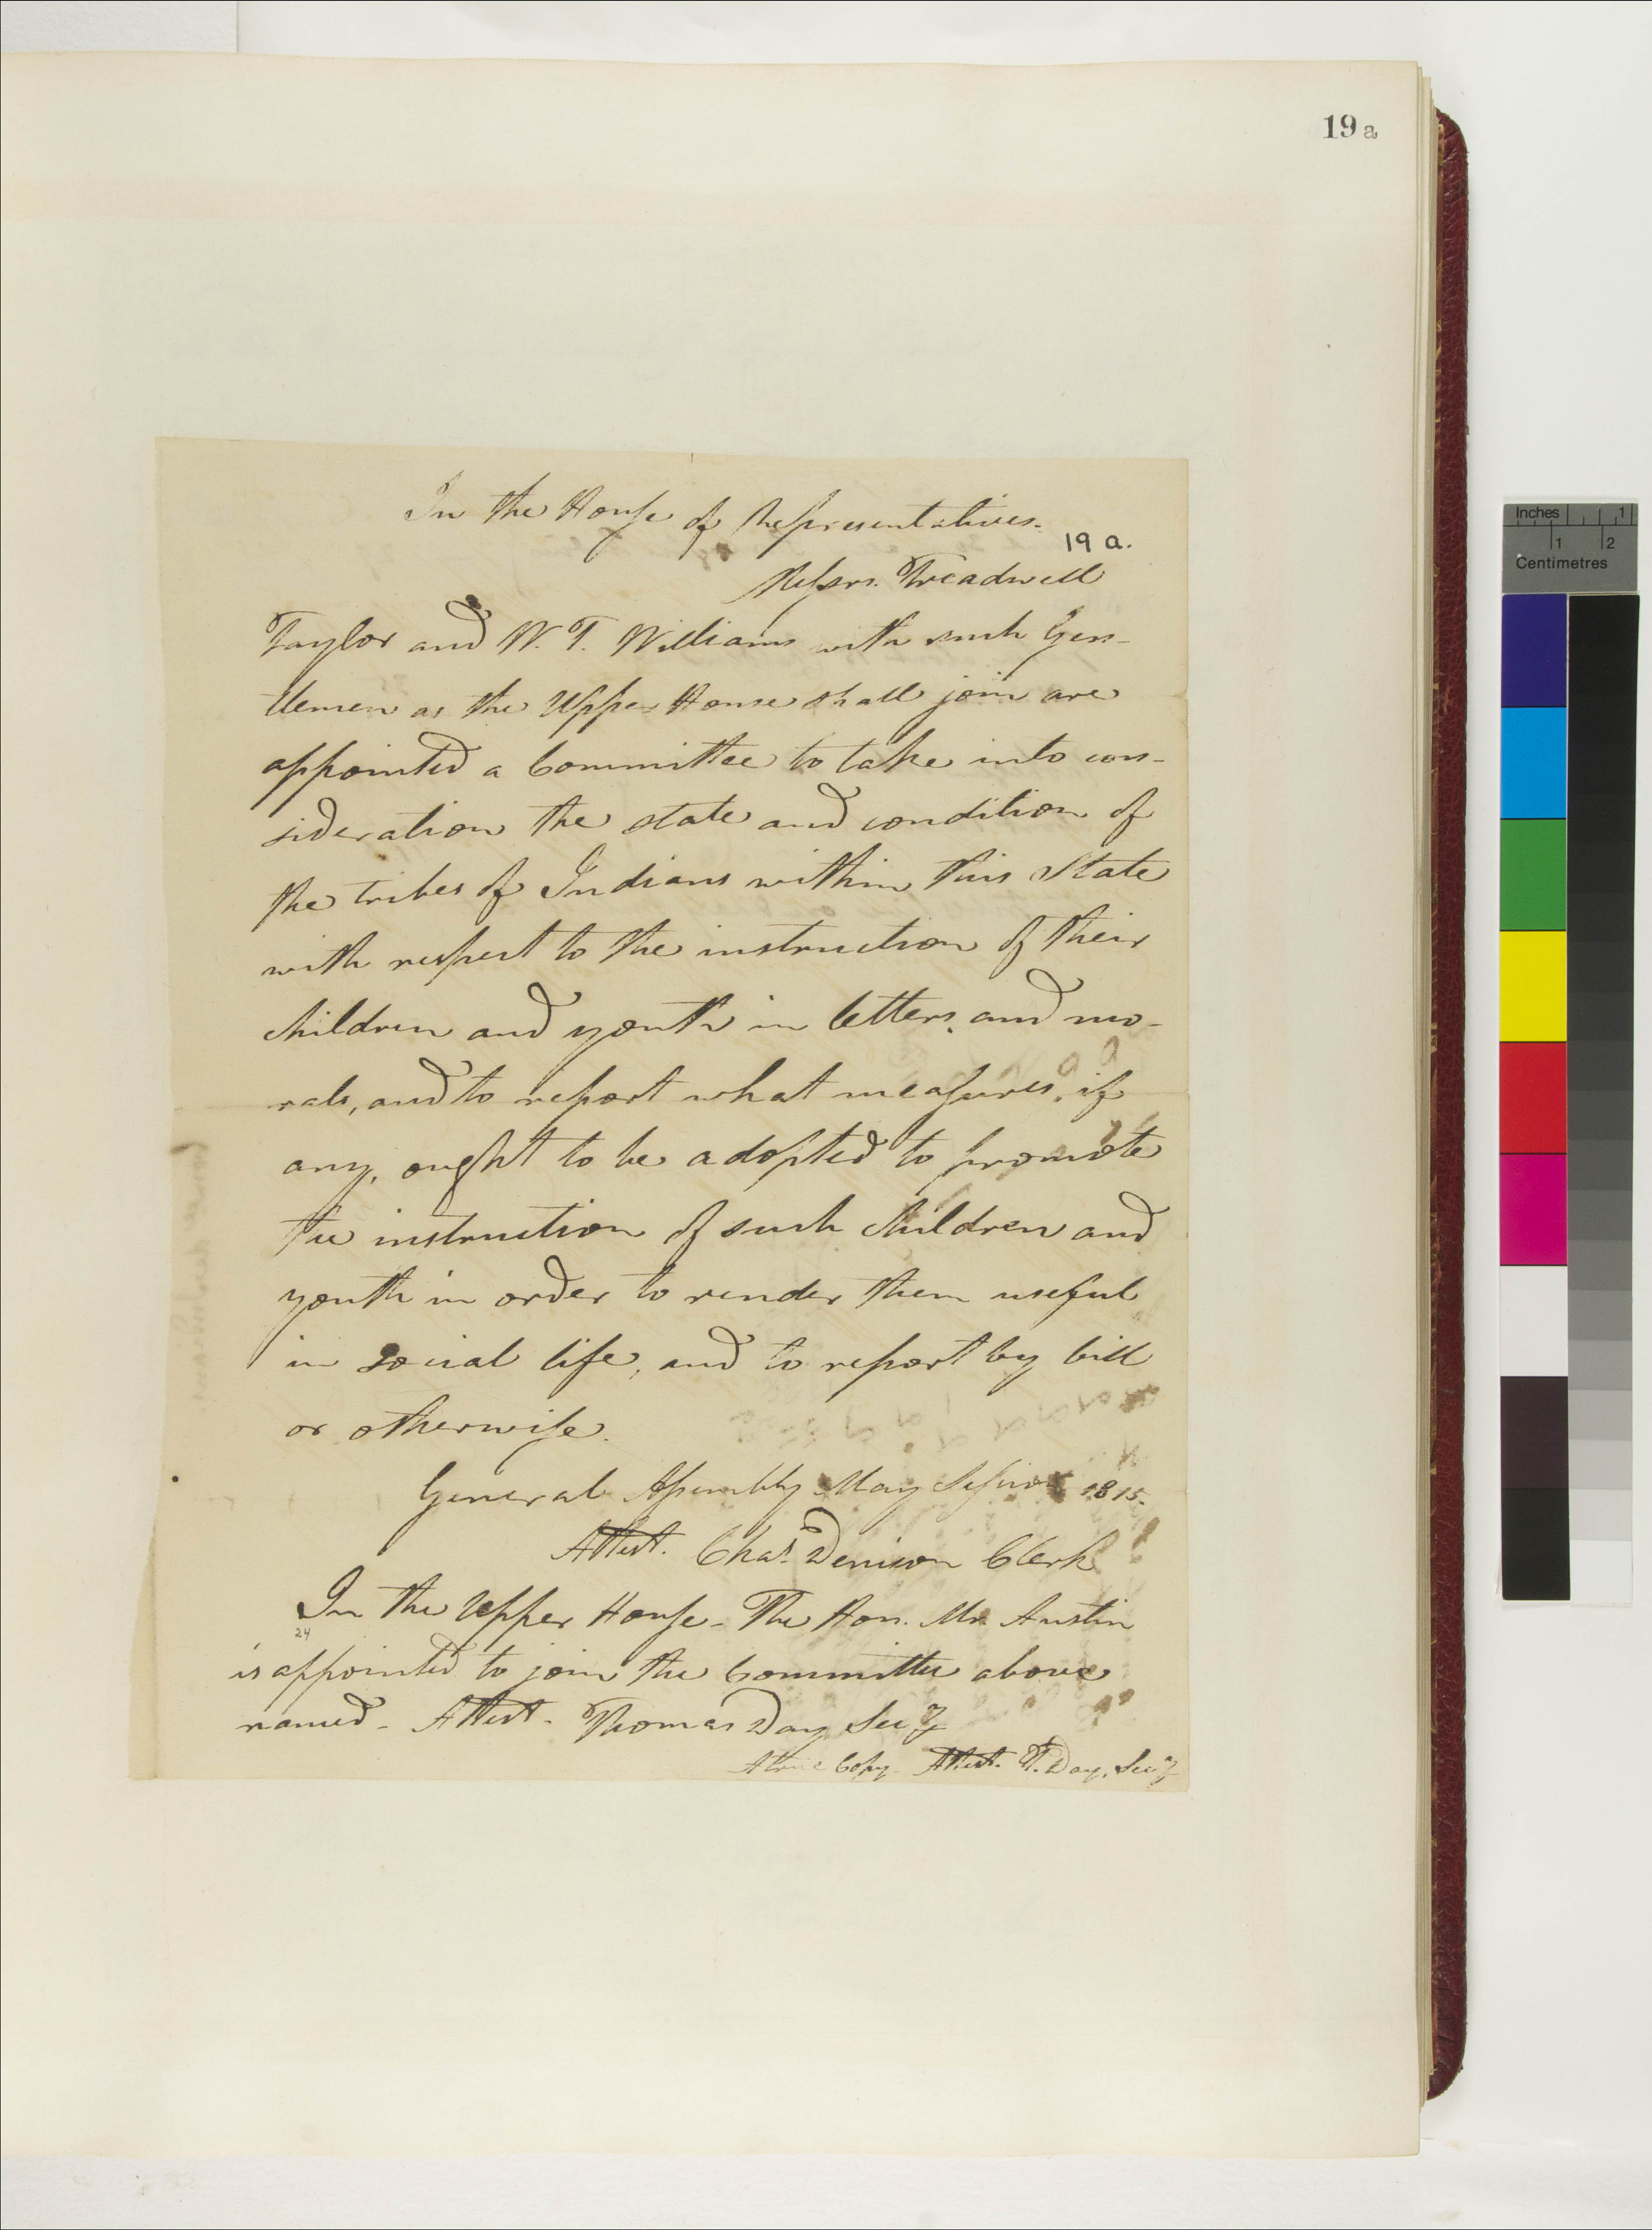 19 a
In the House of Representatives.
19 a.
Messrs. Treadwell
Taylor and W. T. Williams with such Gen-
tlemen as the Upper House shall join are
appointed a Committee to take into con-
sideration the state and condition of
the tribes of Indians within this State
with respect to the instruction of their
children and youth in letters and mo-
rals, and to report what measures, if
any, ought to be adopted to promote
the instruction of such children and
youth in order to render them useful
in social life, and to report by bill
or otherwise.
General Assembly May Session 1815.
Attest. Chas. Denison Clerk
In the Upper House - The Hon. Mr. Austin
24
is appointed to join the Committee above
named - Attest - Thomas Day Secy
A true Copy - Attest. T. Day, Secy
Inches 1
1 2
Centimetres